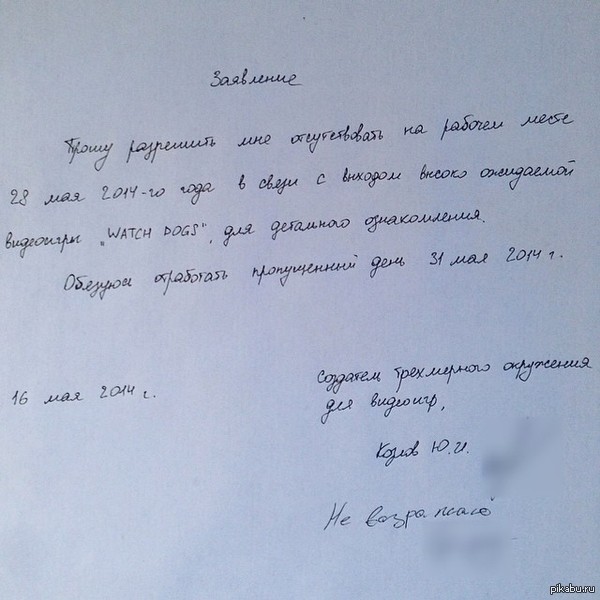 Заявление
Прошу разрешить мне отсутствовать на рабочем месте
28 мая 2014-го года в связи с выходом высоко ожидаемой
видеоигры „WATCH DOGS", для детального ознакомления.
Обязуюсь отработать пропущенный день 31 мая 2014 г.
16 мая 2014 г.
Создатель трехмерного окружения
для видеоигр,
Козлов Ю.И.
Не возражаю
pikabu.ru